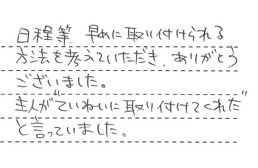 日程等 早めに取り付けられる
方法を考えていただき、ありがとう
ございました。
主人が"ていねいに取り付けてくれた"
と言っていました。